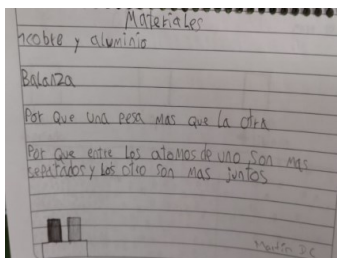 Materiales
cobre y aluminio
Balanza
Por que una pesa mas que la otra
Por que entre los atomos de uno son mas
separados y los otro son mas juntos
Martín D.C